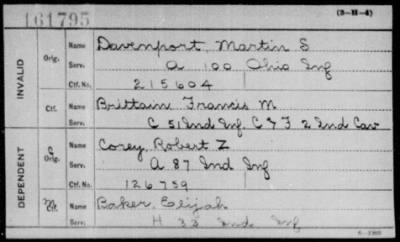 161795
(3-H-4)
INVALID
Orig. Name Davenport, Martin S
Serv. A 100 Ohio Inf
Ctf. No. 215604
Ctf. Name Brittain Francis M
Serv. C 51 Ind Inf. C & F 2 Ind Cav
DEPENDENT
C Orig. Name Corey, Robert Z
Serv. A 87 Ind Inf
Ctf. No. 126759
M Ctf. Name Baker, Elijah
Serv. H 33 Ind Inf